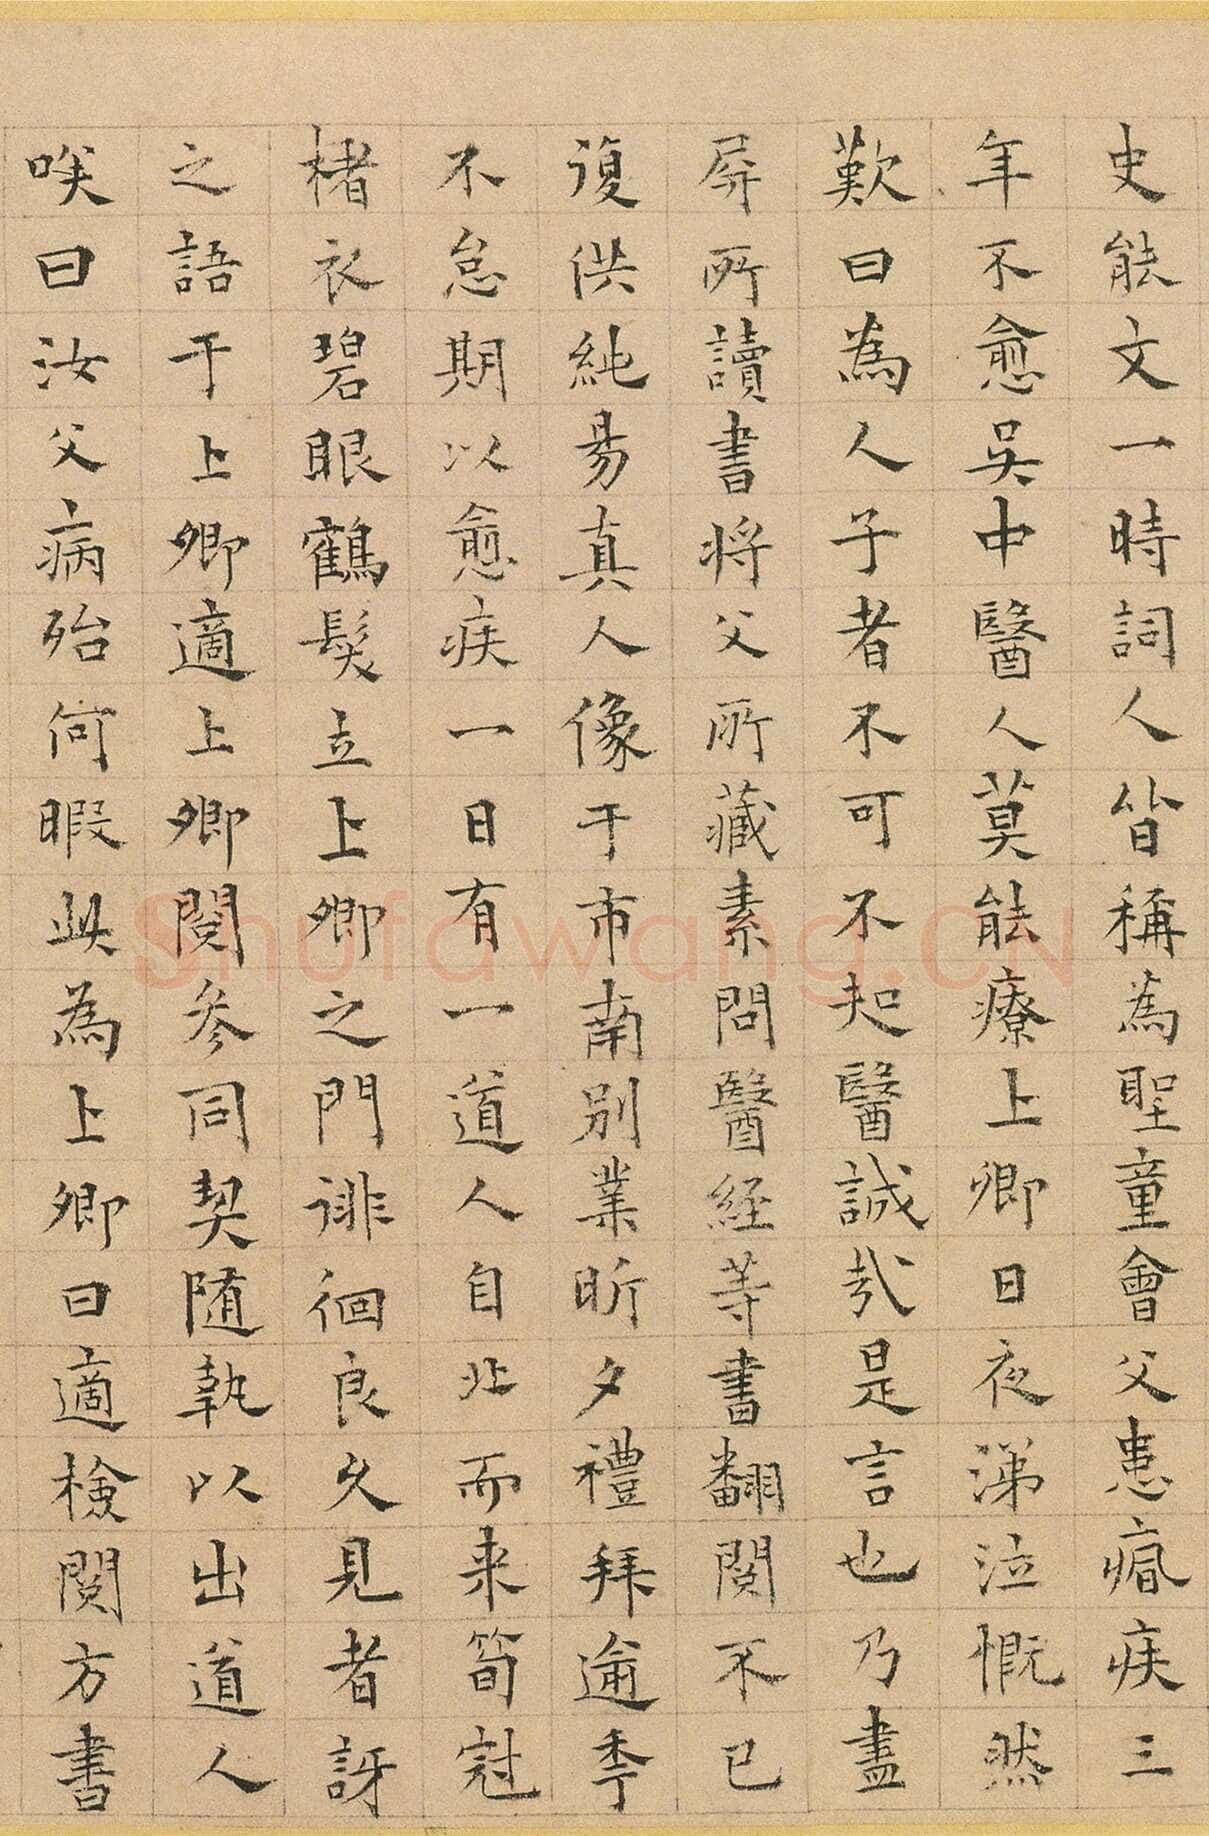 史能文一時詞人皆稱為聖童會父患瘡疾三
年不愈吳中醫人莫能療上卿日夜涕泣慨然
歎曰為人子者不可不知醫誠哉是言也乃盡
屏所讀書將父所藏素問醫經等書翻閱不已
復供純昜真人像于市南別業昕夕禮拜逾季
不怠期以愈疾一日有一道人自北而来筍冠
楮衣碧眼鶴髮立上卿之門徘徊良久見者訝
之語于上卿適上卿閱參同契随執以出道人
唉曰汝父病殆何暇此為上卿曰適檢閱方書
Shufawang.CN